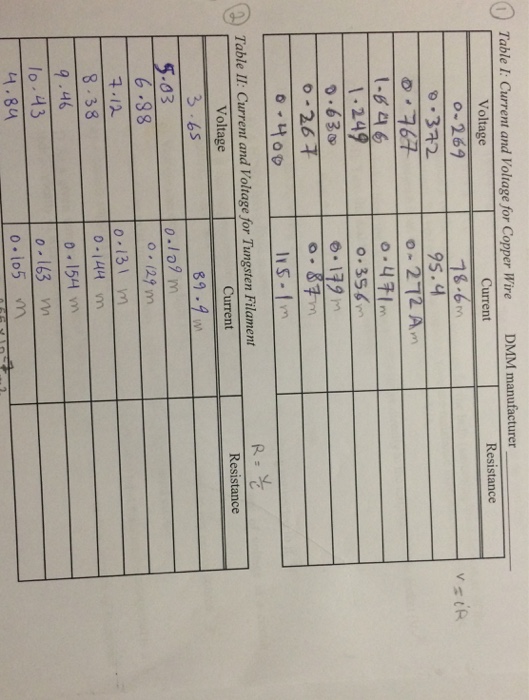 ① Table I: Current and Voltage for Copper Wire DMM manufacturer
Voltage Current Resistance
V = iR
0.269 78.6m
0.372 95.4
0.767 0.272 Am
1.646 0.471m
1.249 0.356m
0.630 0.179m
0.267 0.87m
0.400 115.1m
② Table II: Current and Voltage for Tungsten Filament
R = V/i
Voltage Current Resistance
3.65 89.9m
5.03 0.109m
6.88 0.129m
7.12 0.131 m
8.38 0.144 m
9.46 0.154 m
10.43 0.163 m
4.84 0.105 m